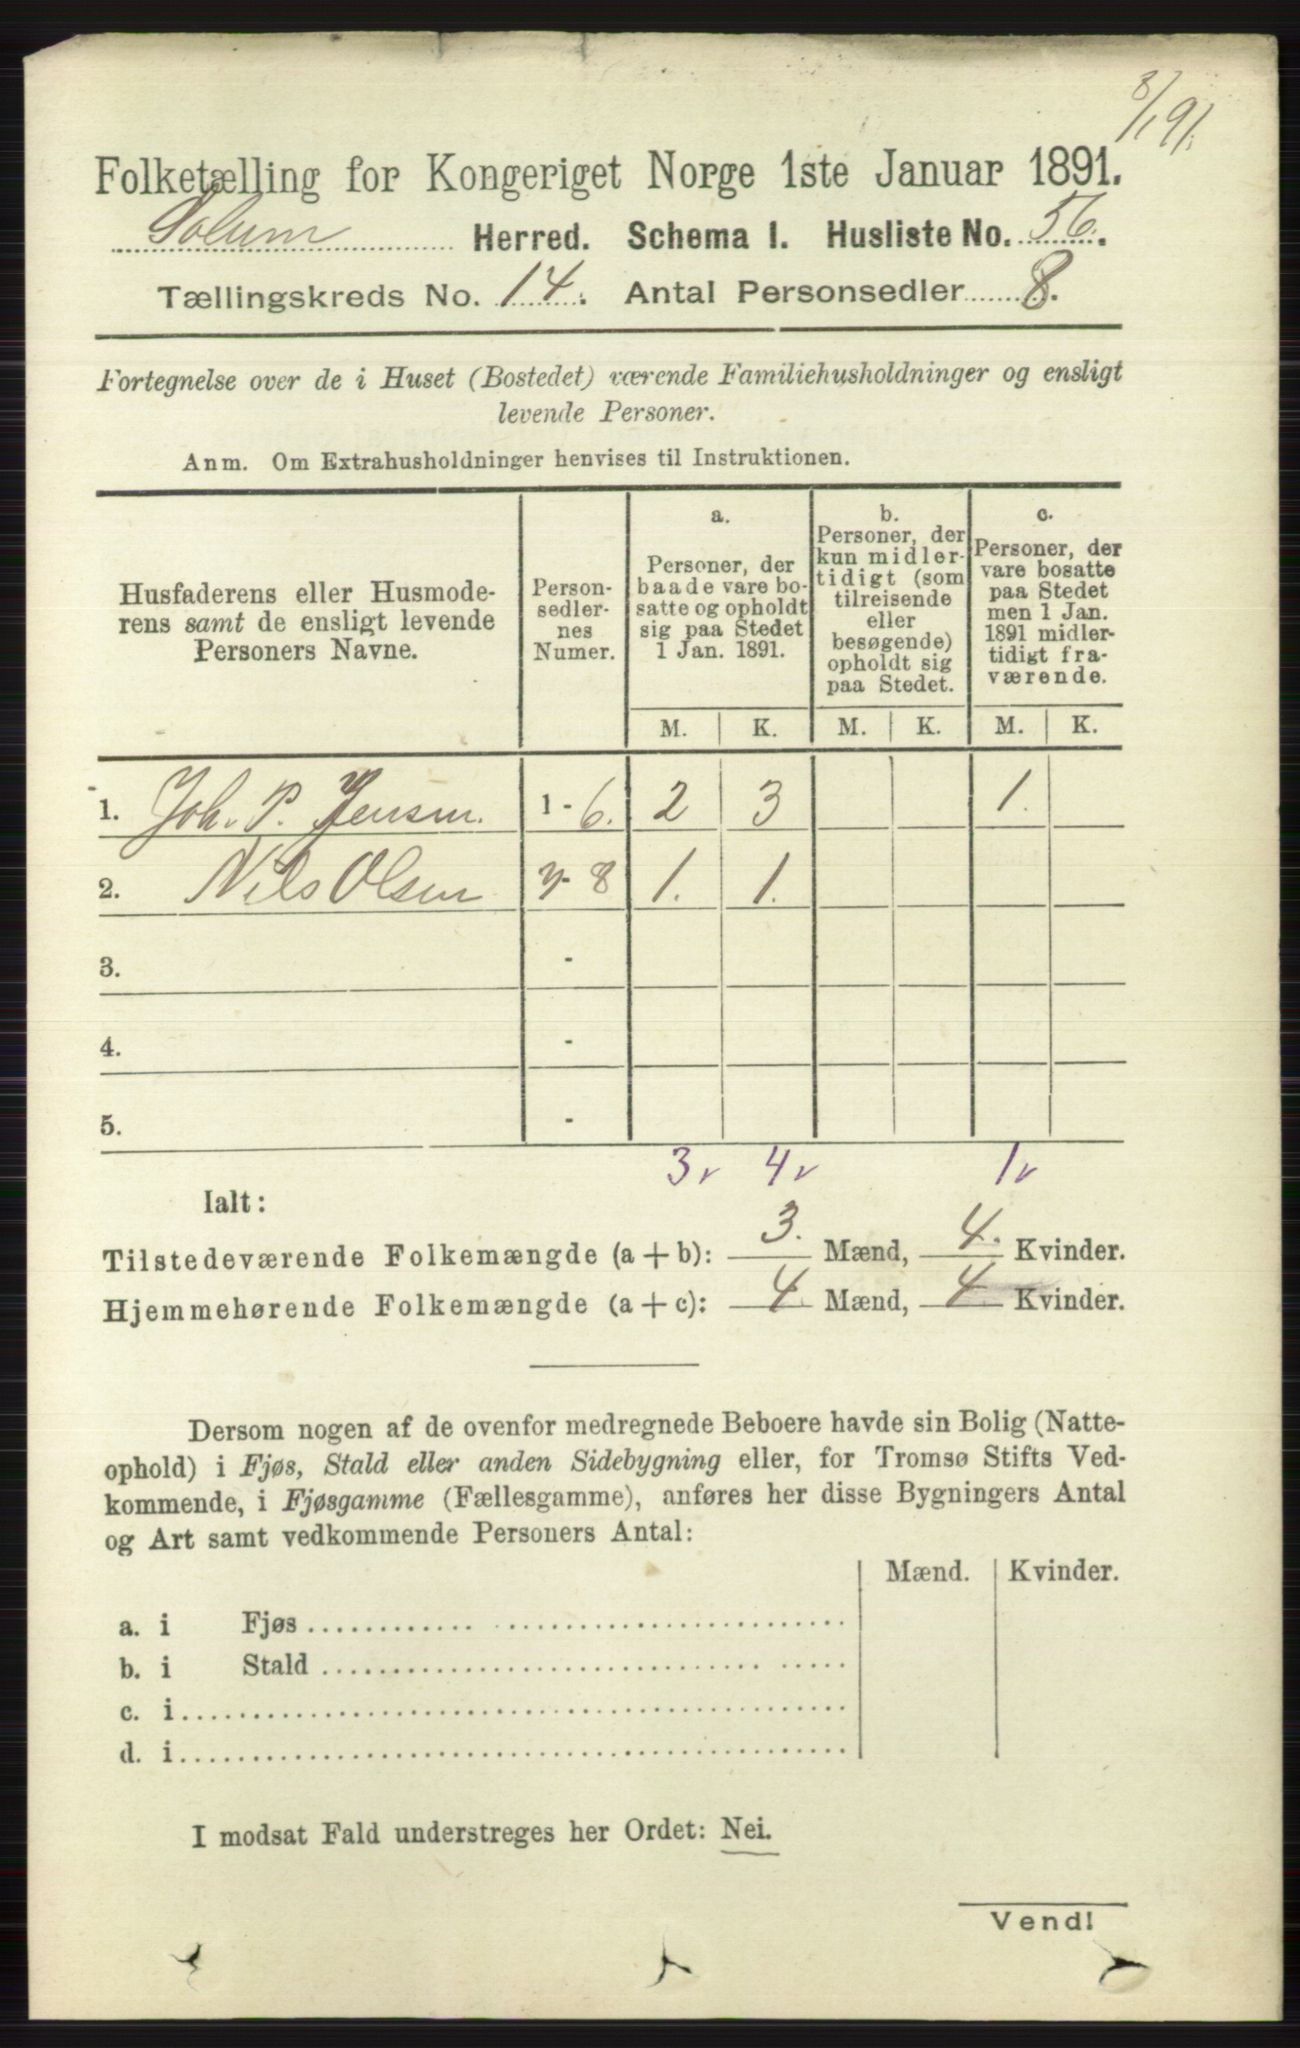 8/1 91.
Folketælling for Kongeriget Norge 1ste Januar 1891.
Solum Herred. Schema I. Husliste No. 56.
Tællingskreds No. 14. Antal Personsedler 8.
Fortegnelse over de i Huset (Bostedet) værende Familiehusholdninger og ensligt
levende Personer.
Anm. Om Extrahusholdninger henvises til Instruktionen.
Husfaderens eller Husmode-
rens samt de ensligt levende
Personers Navne.
Person-
sedler-
nes
Numer.
a.
Personer, der
baade vare bo-
satte og opholdt
sig paa Stedet
1 Jan. 1891.
b.
Personer, der
kun midler-
tidigt (som
tilreisende
eller
besøgende)
opholdt sig
paa Stedet.
c.
Personer, der
vare bosatte
paa Stedet
men 1 Jan.
1891 midler-
tidigt fra-
værende.
M. K. M. K. M. K.
1. Joh. P. Jensen. 1 - 6. 2 3 1.
2. Nils Olsen 7 - 8 1. 1.
3. -
4. -
5. -
3 v 4 v 1 v
Ialt:
Tilstedeværende Folkemængde (a + b): 3. Mænd, 4. Kvinder.
Hjemmehørende Folkemængde (a + c): 4 Mænd, 4 Kvinder.
Dersom nogen af de ovenfor medregnede Beboere havde sin Bolig (Natte-
ophold) i Fjøs, Stald eller anden Sidebygning eller, for Tromsø Stifts Ved-
kommende, i Fjøsgamme (Fællesgamme), anføres her disse Bygningers Antal
og Art samt vedkommende Personers Antal:
Mænd. Kvinder.
a. i Fjøs
b. i Stald
c. i
d. i
I modsat Fald understreges her Ordet: Nei.
Vend!